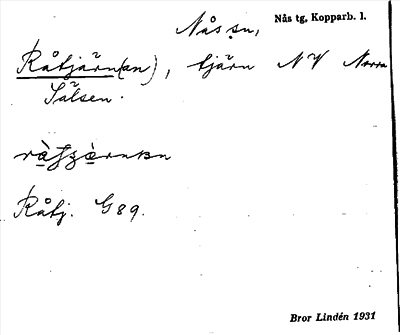 Nås sn, Nås tg, Kopparb. l.
Råtjärn(an), tjärn NV Norra
Sälsen.
Råtj. G89.
Bror Lindén 1931